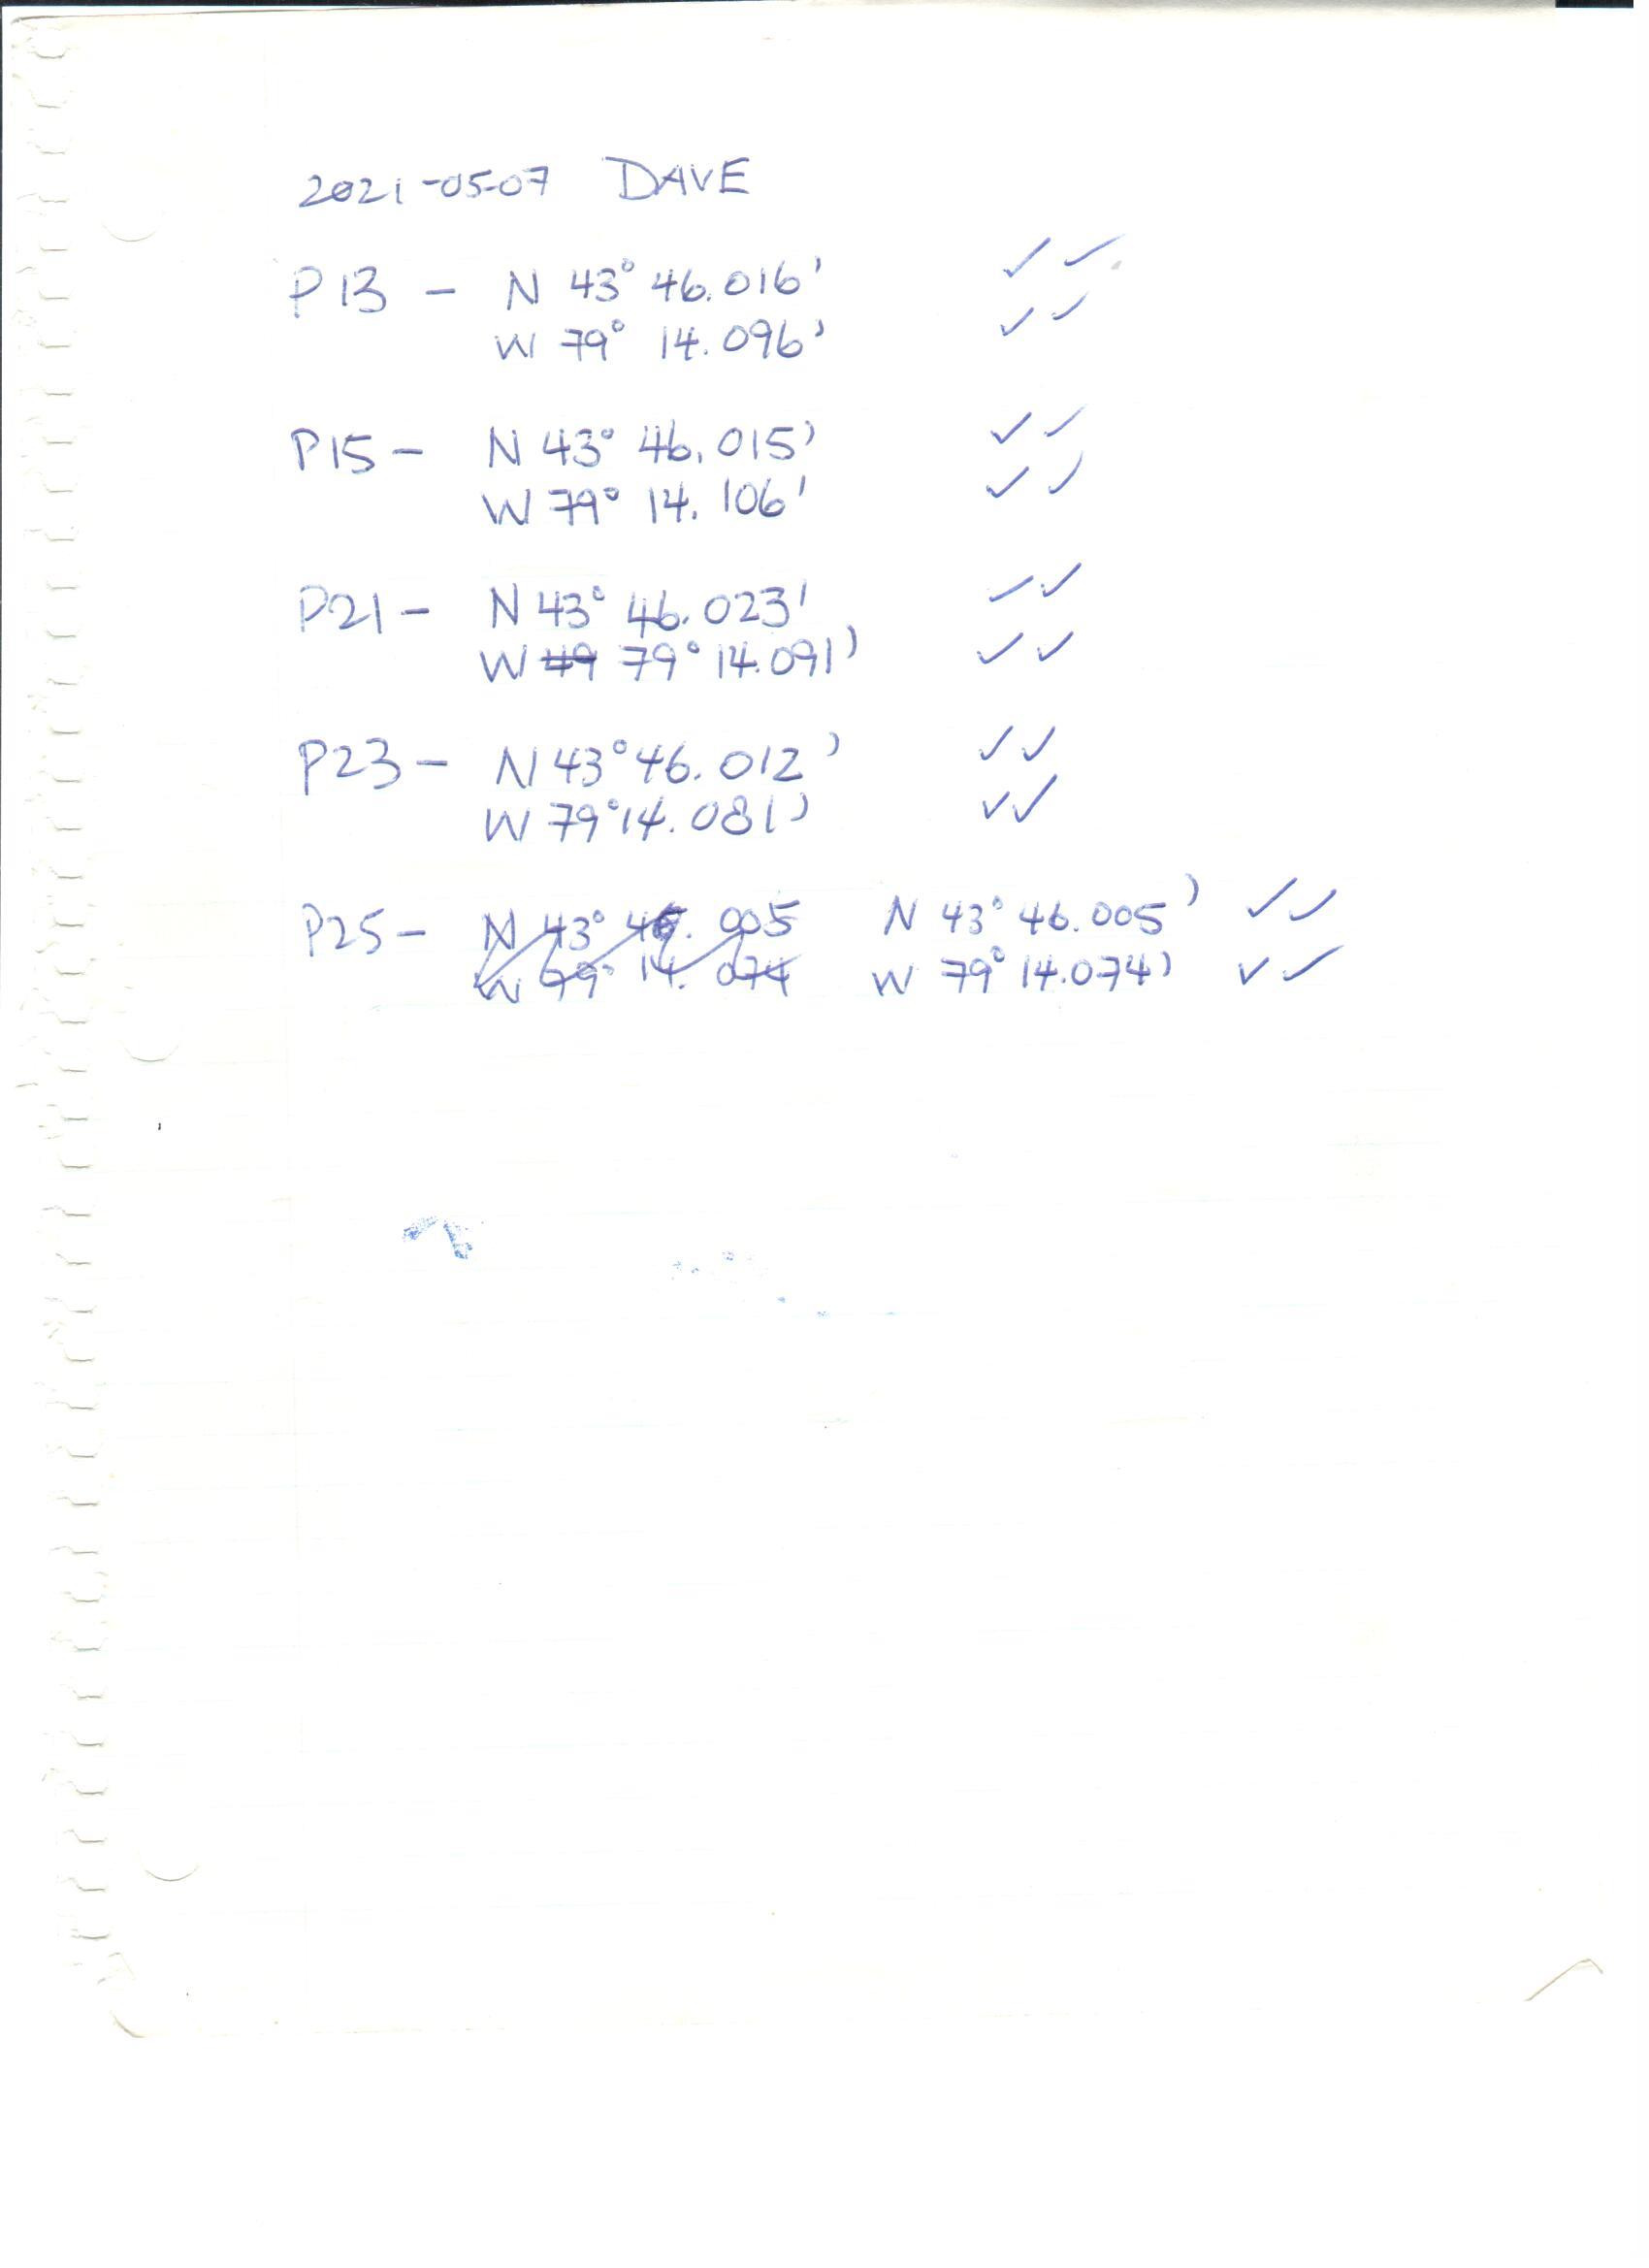 2021-05-07 DAVE
P13 - N 43° 46.016' ✓ ✓
W 79° 14.096' ✓ ✓
P15 - N 43° 46.015' ✓ ✓
W 79° 14.106' ✓ ✓
P21 - N 43° 46.023' ✓ ✓
W 49 79° 14.091' ✓ ✓
P23 - N 43° 46.012' ✓ ✓
W 79° 14.081' ✓ ✓
P25 - N 43° 46.005 N 43° 46.005' ✓ ✓
W 79° 14.074 W 79° 14.074' ✓ ✓